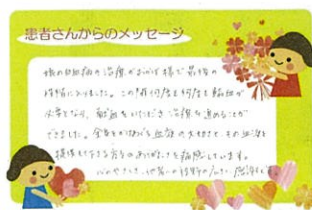 患者さんからのメッセージ
娘の白血病の治療がおかげ様で最後の
段階に入りました。この間何度も何度も輸血が
必要となり、献血をいただき治療を進めることが
できました。今更ながら血液の大切さとその血液を
提供して下さる方々のありがたさを痛感しています。